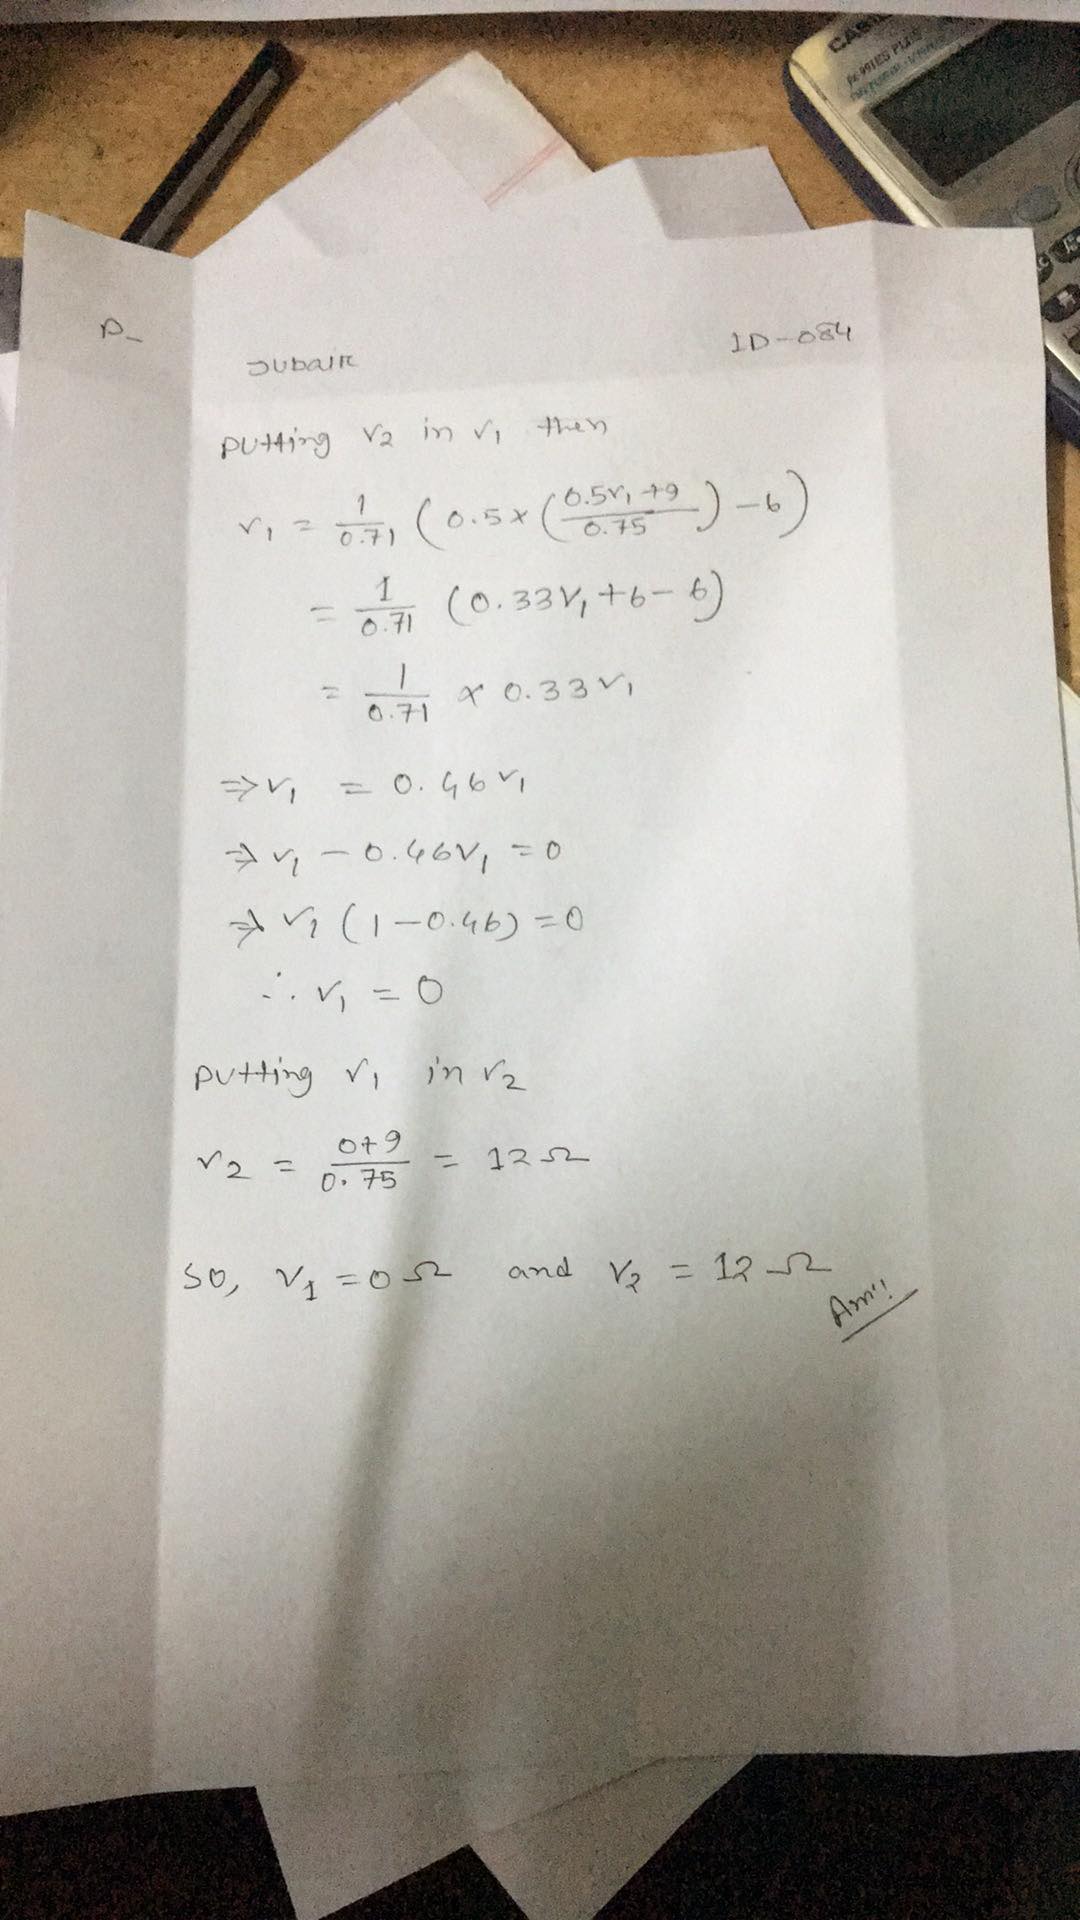 CASIO
fx-991ES PLUS
P-
Jubair
ID-084
putting v2 in v1 then
v1 = 1/0.71 (0.5x(0.5v1+9/0.75)-6)
= 1/0.71 (0.33v1+6-6)
= 1/0.71 x 0.33v1
⇒v1 = 0.46v1
⇒v1 - 0.46v1 = 0
⇒v1 (1-0.46) = 0
∴ v1 = 0
putting v1 in v2
v2 = 0+9/0.75 = 12Ω
so, v1 = 0Ω and v2 = 12Ω
Ans!